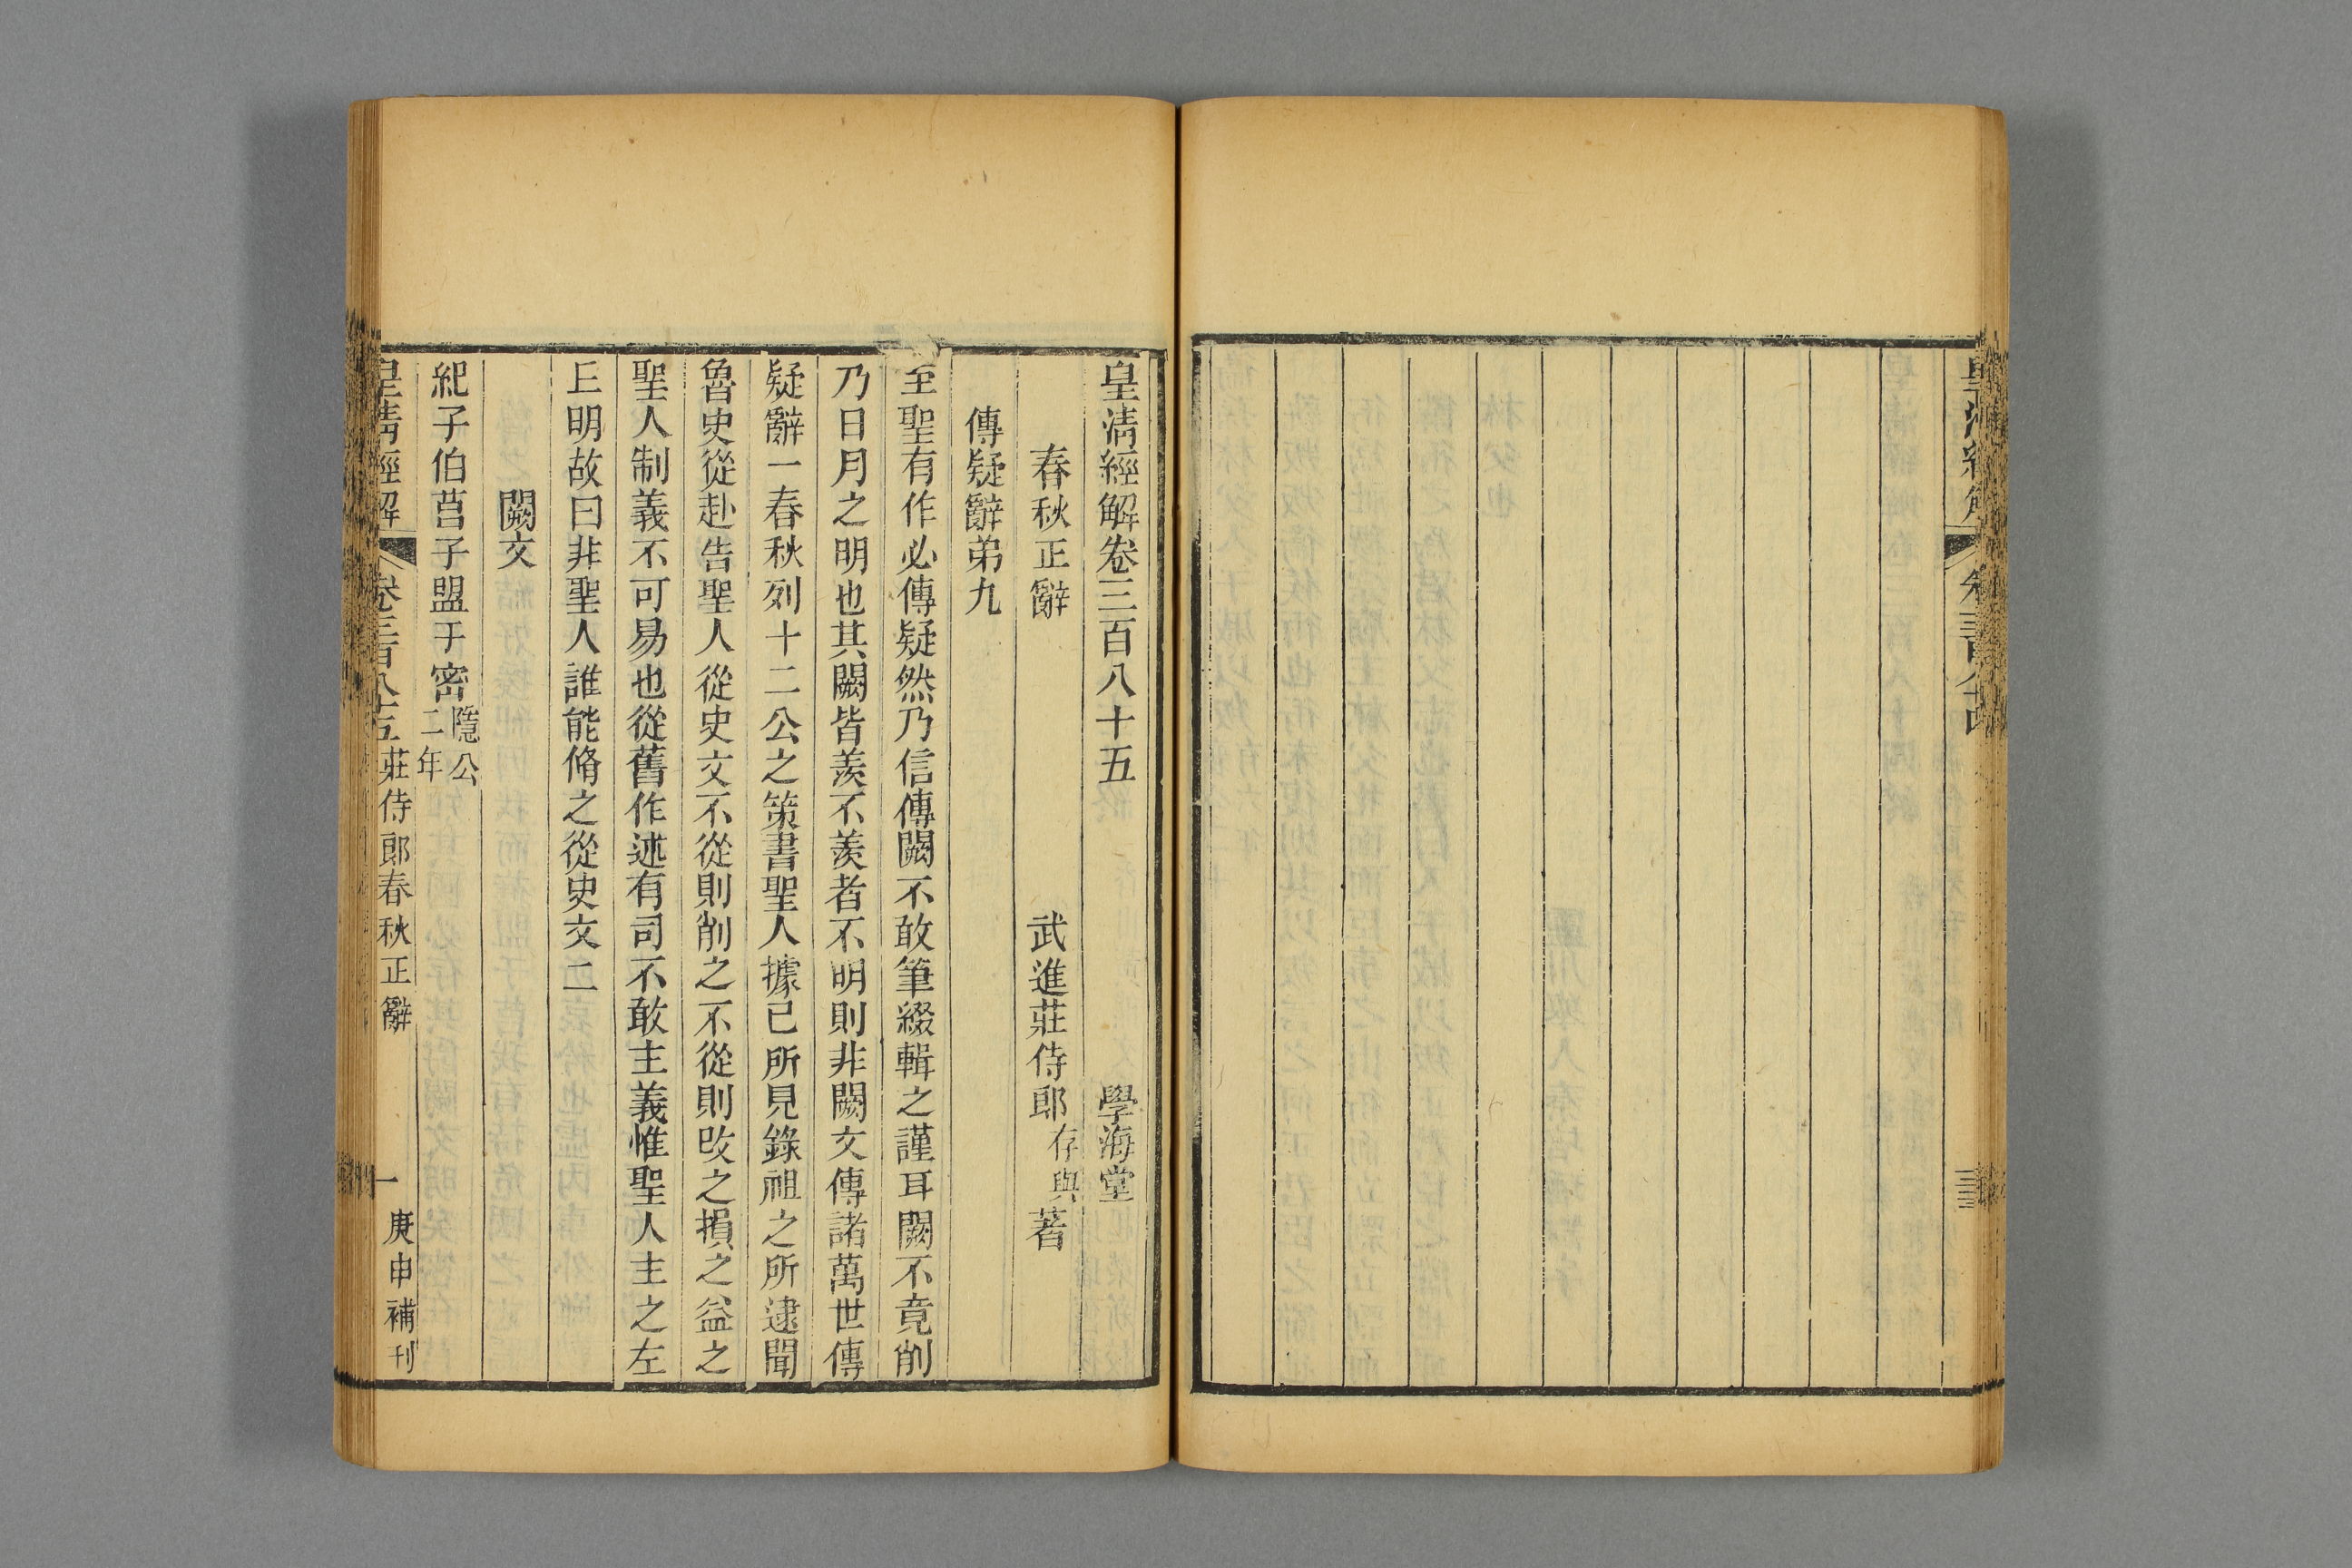 皇清經解卷三百八十五 學海堂
春秋正辭 武進莊侍郎存與著
傳疑辭弟九
至聖有作必傳疑然乃信傳闕不敢筆綴輯之謹耳闕不竟削
乃日月之明也其闕皆羨不羨者不明則非闕文傳諸萬世傳
疑辭一春秋列十二公之策書聖人據已所見錄祖之所逮聞
魯史從赴告聖人從史文不從則削之不從則改之損之益之
聖人制義不可易也從舊作述有司不敢主義惟聖人主之左
丘明故曰非聖人誰能脩之從史文二
闕文
紀子伯莒子盟于密隱公二年
皇清經解 卷三百八十五 莊侍郎春秋正辭 一 庚申補刊